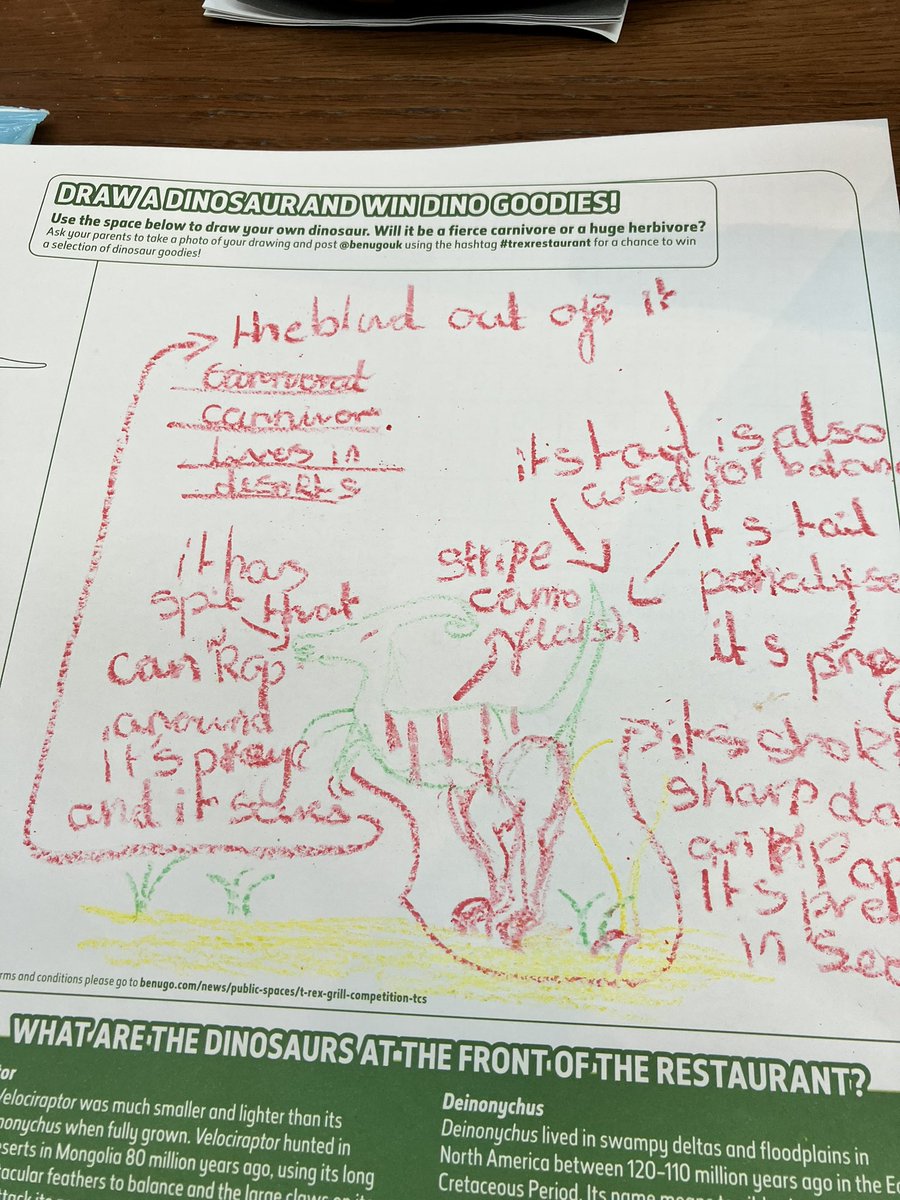 DRAW A DINOSAUR AND WIN DINO GOODIES!
Use the space below to draw your own dinosaur. Will it be a fierce carnivore or a huge herbivore?
Ask your parents to take a photo of your drawing and post @benugouk using the hashtag #trexrestaurant for a chance to win
a selection of dinosaur goodies!
the blud out off it
carnivor.
lives in
desorts
it has
spit thrat
can Rap
around
it's preye
and it
stripe
camo
flaush
it's tail is also
used for balan
it's tail
it's pre
its
sharp
can rip ap
it's pre
in sec
rms and conditions please go to benugo.com/news/public-spaces/t-rex-grill-competition-tcs
WHAT ARE THE DINOSAURS AT THE FRONT OF THE RESTAURANT?
tor
Velociraptor was much smaller and lighter than its
nonychus when fully grown. Velociraptor hunted in
eserts in Mongolia 80 million years ago, using its long
tacular feathers to balance and the large claws on it
Deinonychus
Deinonychus lived in swampy deltas and floodplains in
North America between 120–110 million years ago in the Ea
Cretaceous Period. Its name means